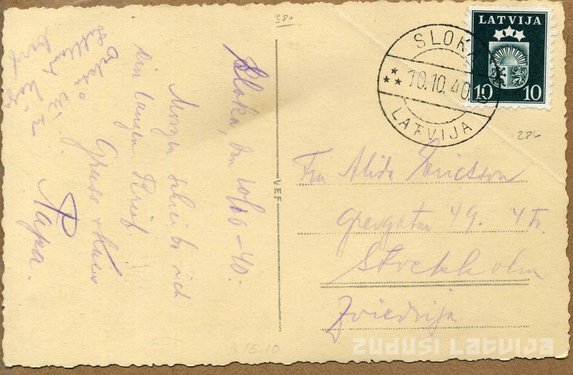 380
LATVIJA
10 10
SLOKA
10.10.40
LATVIJA
286
Sloka, den 10/10-40.
Morgen schreibe ich
den langen Brief
Gruss + Kuss
Papa.
VEF
Fru Alida Ericsson
Grevgatan 49. 4 Tr.
Stockholm
Zviedrija.
15.10
ZUDUSI LATVIJA